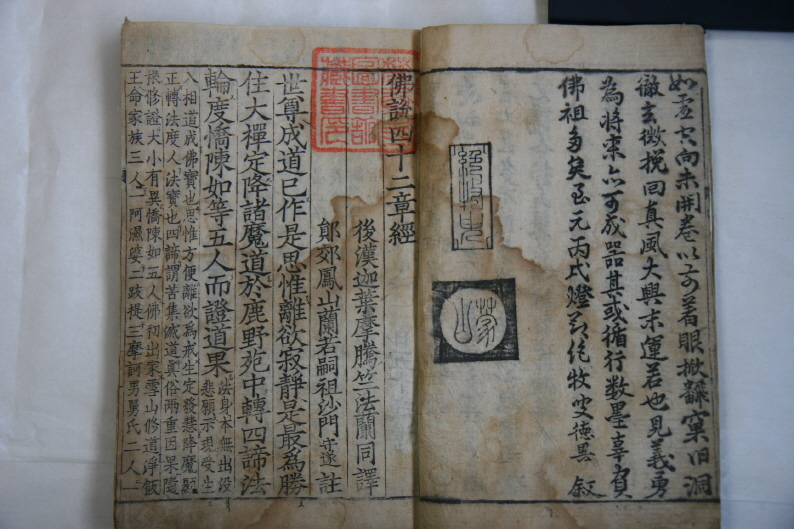 如虛空向未開卷以前著眼掀飜窠臼洞
徹玄微挽回真風大興末運若也見義勇
為將來亦可成器其或循行数墨辜負
佛祖多矣至元丙戌燈節絶牧叟德異 叙
蒙山
佛說四十二章經
後漢迦葉摩騰竺法蘭同譯
鄓郊鳳山蘭若嗣祖沙門守遂註
世尊成道已作是思惟離欲寂靜是最爲勝
住大禪定降諸魔道於鹿野苑中轉四諦法
輪度憍陳如等五人而證道果
法身本無出没
悲願示現受生
入相道成佛寶也思惟方便離欲爲戒生定發慧降魔顯
正轉法度人法寶也四諦謂苦集滅道眞俗兩重因果隨
根修證大小有異憍陳如五人佛初出家雪山修道淨飯
王命家族三人一阿濕婆二跋提三摩訶男舅氏二人一